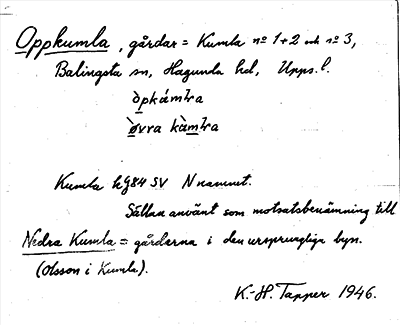 Oppkumla, gårdar = Kumla nº 1+2 och nº 3,
Balingsta sn, Hagunda hd, Upps. l.
òpkám̀ɬra
ø̀vra kàm̀ɬra
Kumla hg84 SV N namnet.
Sällan använt som motsatsbenämning till
Nedra Kumla = gårdarna i den ursprungliga byn.
(Olsson i Kumla).
K.-H. Tapper 1946.